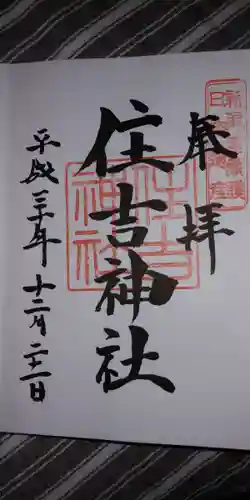 奉拝
住吉神社
平成三十年十二月二十二日
住吉神社